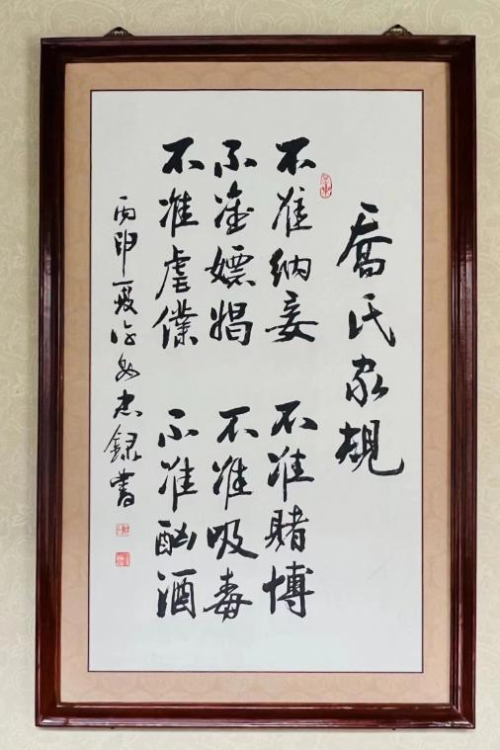 喬氏家規
不准纳妾 不准赌博
不准嫖娼 不准吸毒
不准虐僕 不准酗酒
丙申夏 忠録書